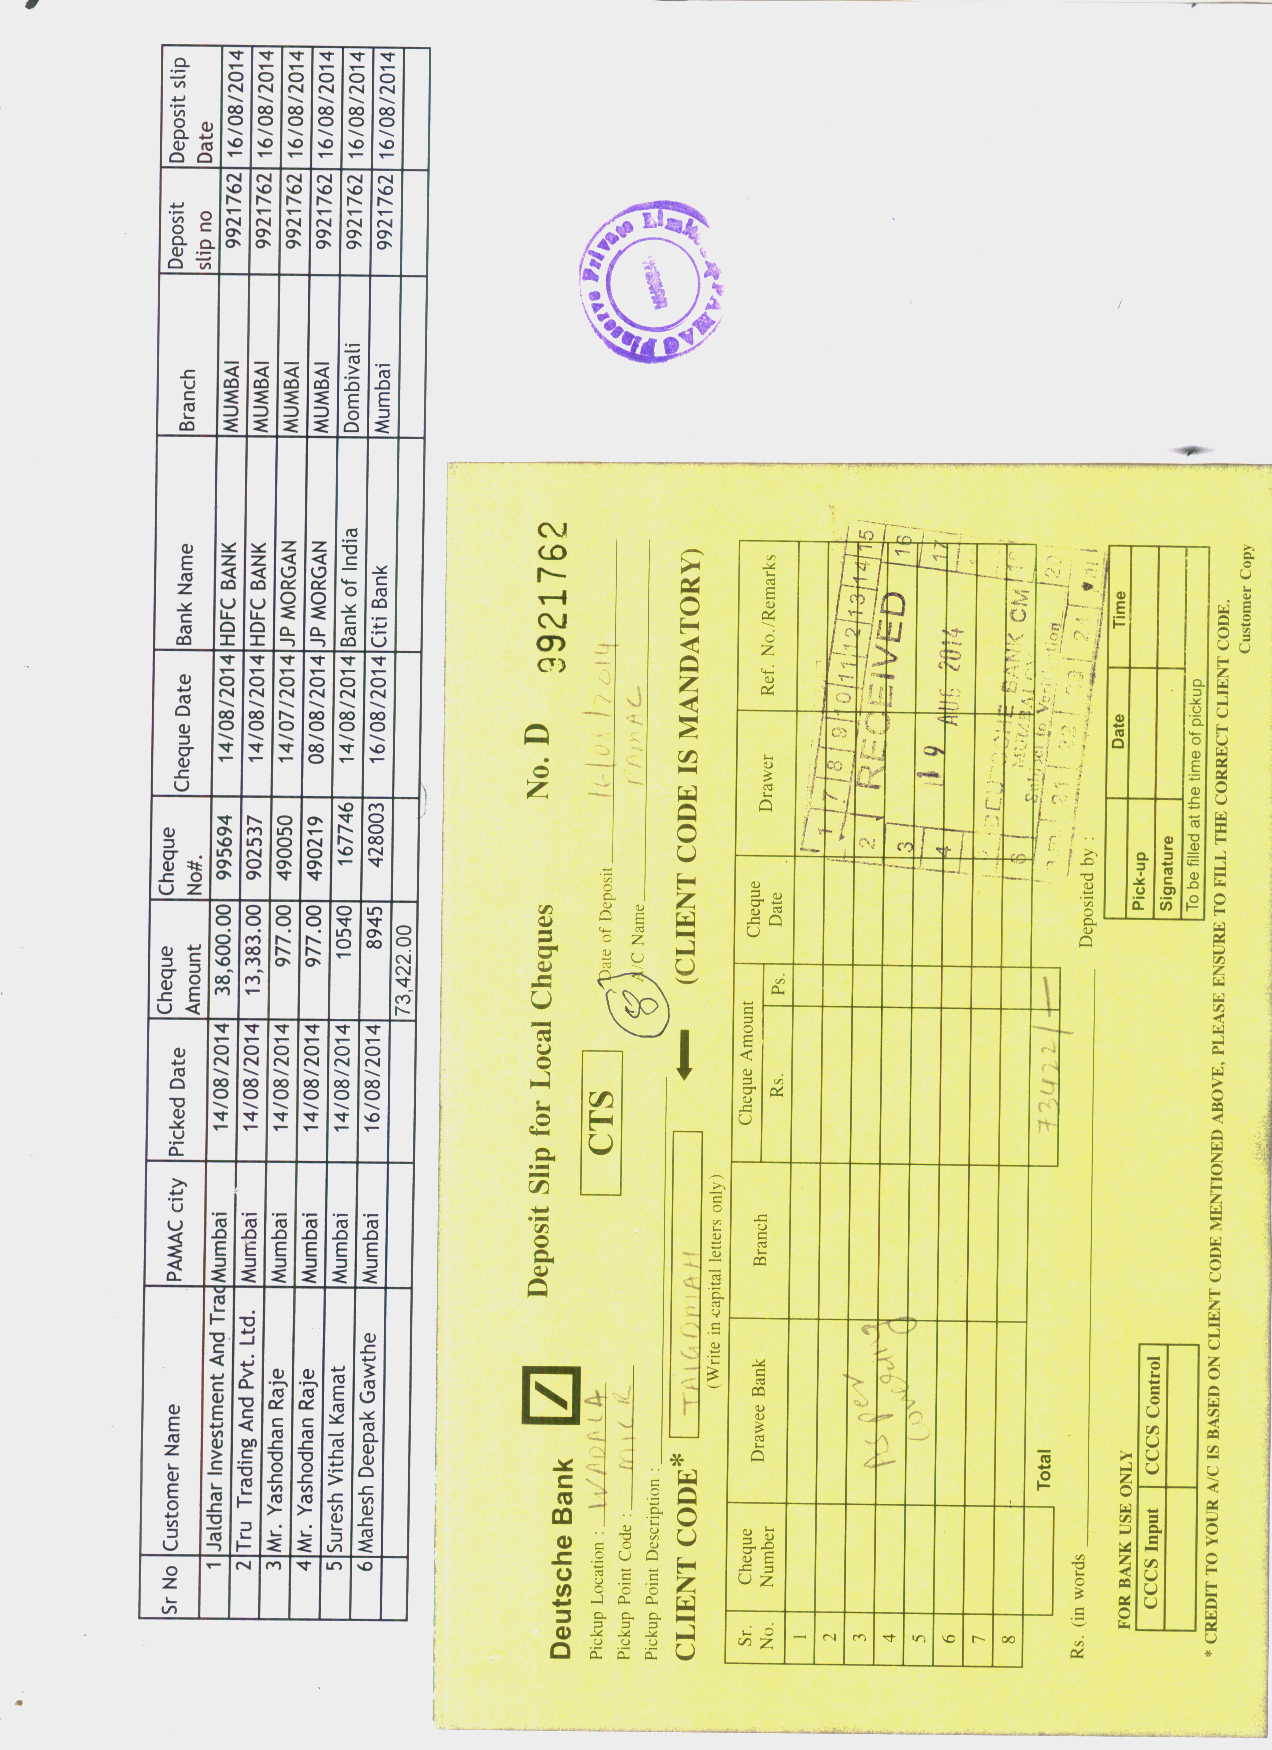 Sr No Customer Name PAMAC city Picked Date Cheque Amount Cheque No#. Cheque Date Bank Name Branch Deposit slip no Deposit slip Date
1 Jaldhar Investment And Trad Mumbai 14/08/2014 38,600.00 995694 14/08/2014 HDFC BANK MUMBAI 9921762 16/08/2014
2 Tru Trading And Pvt. Ltd. Mumbai 14/08/2014 13,383.00 902537 14/08/2014 HDFC BANK MUMBAI 9921762 16/08/2014
3 Mr. Yashodhan Raje Mumbai 14/08/2014 977.00 490050 14/07/2014 JP MORGAN MUMBAI 9921762 16/08/2014
4 Mr. Yashodhan Raje Mumbai 14/08/2014 977.00 490219 08/08/2014 JP MORGAN MUMBAI 9921762 16/08/2014
5 Suresh Vithal Kamat Mumbai 14/08/2014 10540 167746 14/08/2014 Bank of India Dombivali 9921762 16/08/2014
6 Mahesh Deepak Gawthe Mumbai 16/08/2014 8945 428003 16/08/2014 Citi Bank Mumbai 9921762 16/08/2014
73,422.00
PAMAC Finserve Private
Deutsche Bank Deposit Slip for Local Cheques No. D 9921762
Pickup Location : WADALA CTS Date of Deposit
Pickup Point Code : MICR 8 A/C Name PAMAC
Pickup Point Description :
CLIENT CODE* (CLIENT CODE IS MANDATORY)
(Write in capital letters only)
Sr. No. Cheque Number Drawee Bank Branch Cheque Amount Rs. Ps. Cheque Date Drawer Ref. No./Remarks
1
2
3 As per
4
5
6
7
8
Total 73422/-
RECEIVED
19 AUG 2014
DEUTSCHE BANK CM
Rs. (in words Deposited by :
FOR BANK USE ONLY
CCCS Input CCCS Control
Date Time
Pick-up
Signature
To be filled at the time of pickup
* CREDIT TO YOUR A/C IS BASED ON CLIENT CODE MENTIONED ABOVE, PLEASE ENSURE TO FILL THE CORRECT CLIENT CODE.
Customer Copy